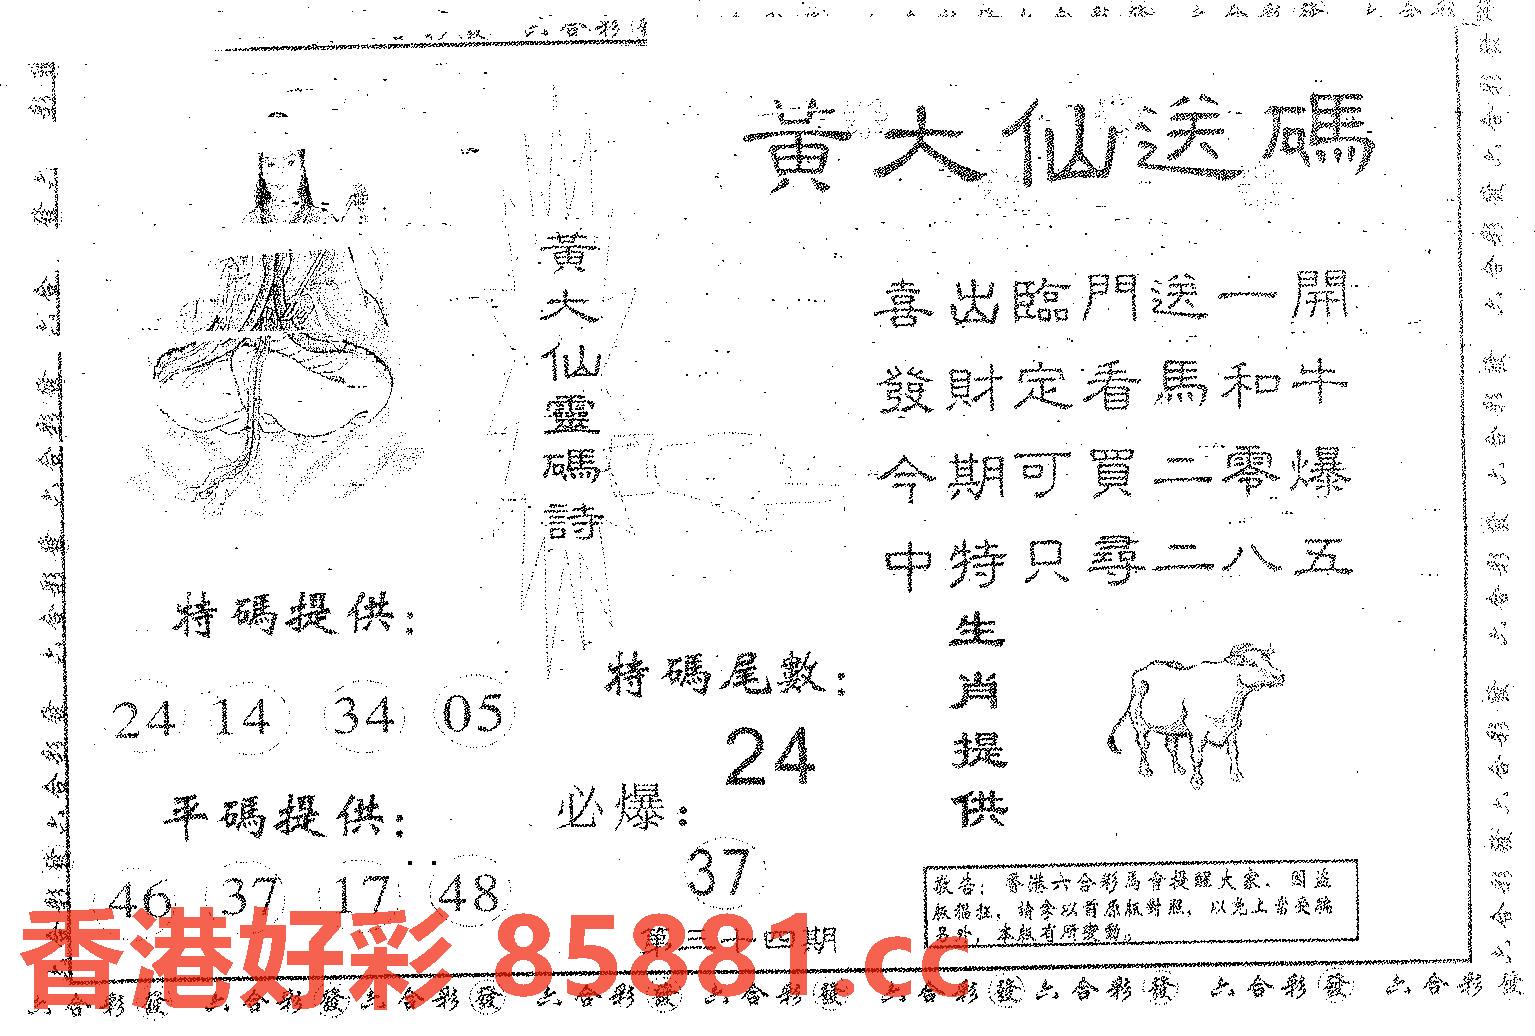 六合彩
黃大仙送碼
黃大仙靈碼詩
喜出臨門送一開
發財定看馬和牛
今期可買二零爆
中特只尋二八五
特碼提供:
24 14 34 05
平碼提供:
46 37 17 48
特碼尾數:
24
必爆:
37
第三十四期
生肖提供
敬告：香港六合彩馬會提醒大家．因盜
版猖狂，請拿以首原版對照，以免上當受騙
另外，本版有所變動。
香港好彩 85881.cc
六合彩發 六合彩發 六合彩發 六合彩發 六合彩發 六合彩發 六合彩發 六合彩發 六合彩發